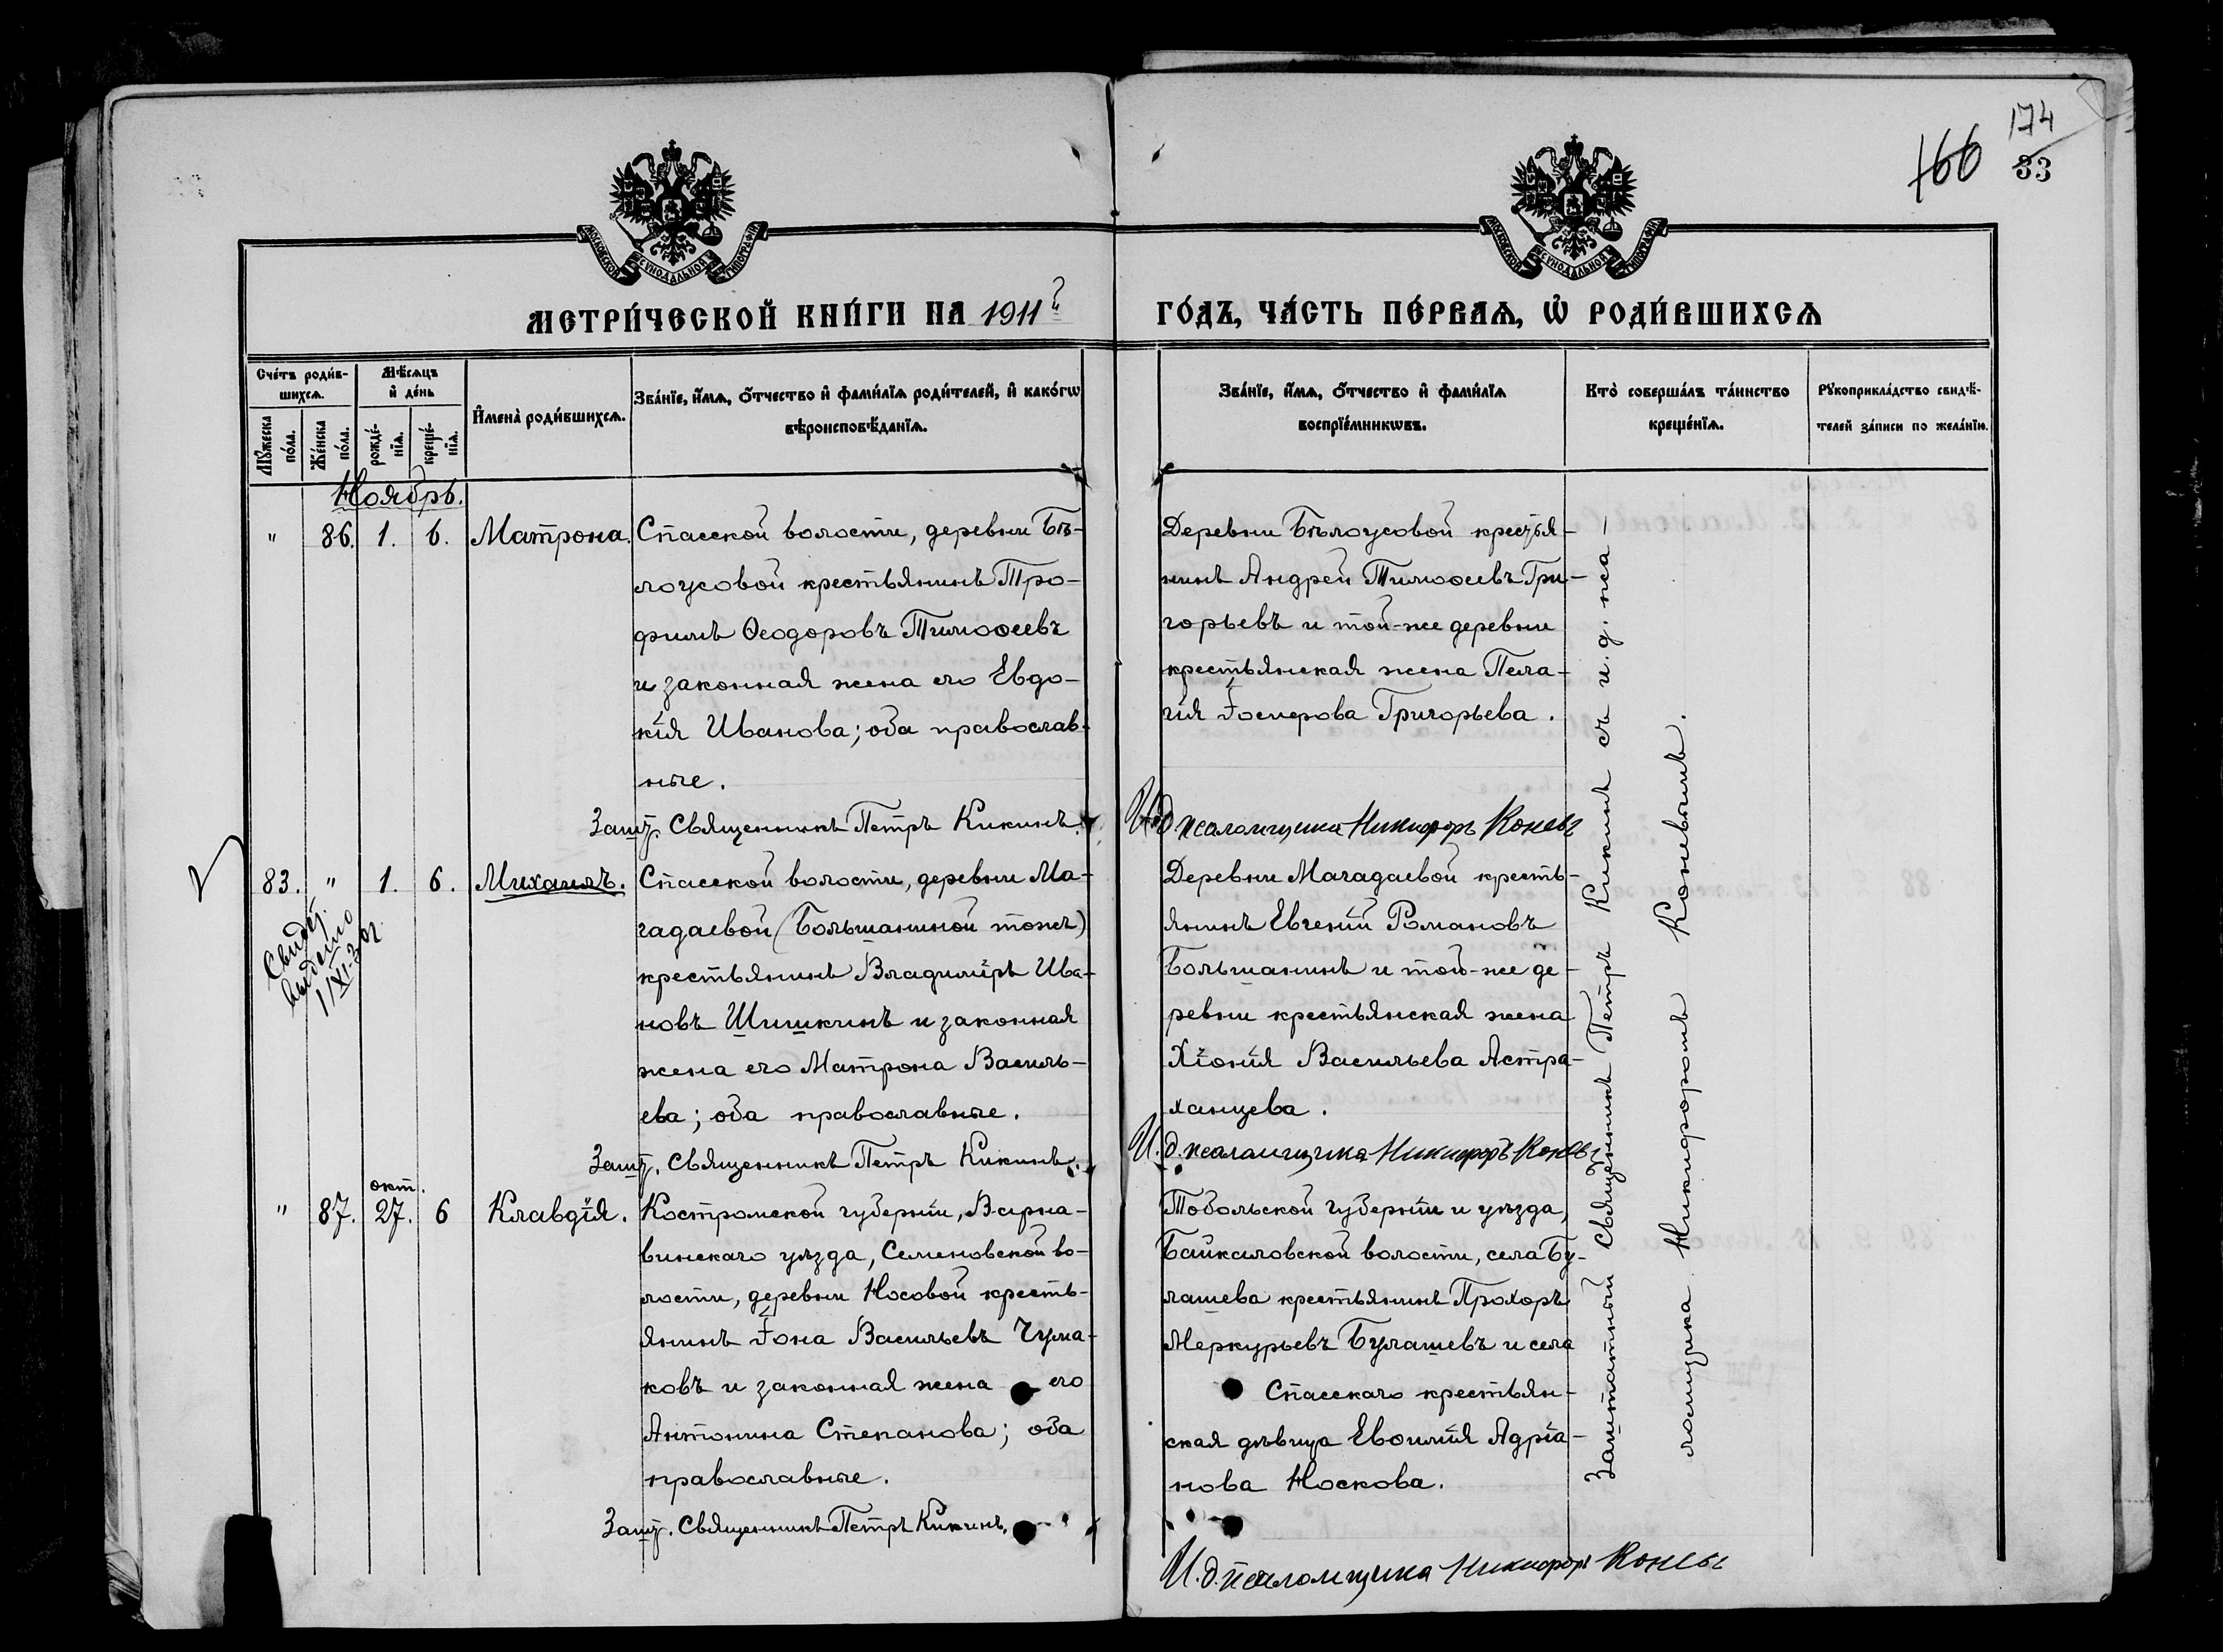 174
166 33
МОСКОВСКОЙ СѴНОДАЛЬНОЙ ТИПОГРАФІИ
МОСКОВСКОЙ СѴНОДАЛЬНОЙ ТИПОГРАФІИ
МЕТРИ́ЧЕСКОЙ КНИ́ГИ НА 1911 г
ГО́ДЪ, ЧА́СТЬ ПЕ́РВАѦ, Ѡ҆ РОДИ́ВШИХСѦ
Сче́тъ роди́в-
шихсѧ.
Мѣ́сѧцъ
и҆ де́нь
Мꙋ́жеска
по́ла.
Же́нска
по́ла.
рожде́-
нїѧ.
креще́-
нїѧ.
И҆мена̀ роди́вшихсѧ.
Зва́нїе, и҆́мѧ, ѻ҆́тчество и҆ фами́лїѧ роди́телей, и҆ како́гѡ
вѣроисповѣ́данїѧ.
Зва́нїе, и҆́мѧ, ѻ҆́тчество и҆ фами́лїѧ
воспрїе́мникѡвъ.
Кто̀ соверша́лъ та́инство
креще́нїѧ.
Рꙋкоприкла́дство свидѣ́-
телей за́писи по жела́нїю.
Ноябрь.
" 86. 1. 6. Матрона.
Спасской волости, деревни Бѣ-
лоусовой крестьянинъ Тро-
фимъ Ѳеодоровъ Тимоѳеевъ
и законная жена его Евдо-
кія Иванова; оба православ-
ные.
Зашт. Священникъ Петръ Кикинъ.
Деревни Бѣлоусовой крестья-
нинъ Андрей Тимоѳеевъ Гри-
горьевъ и той-же деревни
крестьянская жена Пела-
гія Іосифова Григорьева.
И. д. псаломщика Никифоръ Коневъ
83. " 1. 6. Михаилъ.
Свидѣт.
выдано
1/XI-30 г.
Спасской волости, деревни Ма-
гадаевой (Большаниной тожъ)
крестьянинъ Владиміръ Ива-
новъ Шишкинъ и законная
жена его Матрона Василь-
ева; оба православные.
Зашт. Священникъ Петръ Кикинъ.
Деревни Магадаевой кресть-
янинъ Евгеній Романовъ
Большанинъ и той-же де-
ревни крестьянская жена
Хіонія Васильева Астра-
ханцева.
И. д. псаломщика Никифоръ Коневъ
окт.
" 87. 27. 6 Клавдія.
Костромской губерніи, Варна-
винскаго уѣзда, Семеновской во-
лости, деревни Носовой кресть-
янинъ Іона Васильевъ Чума-
ковъ и законная жена его
Антонина Степанова; оба
православные.
Зашт. Священникъ Петръ Кикинъ.
Тобольской губерніи и уѣзда,
Байкаловской волости, села Бу-
лашева крестьянинъ Прохоръ
Меркурьевъ Булашевъ и села
Спасскаго крестьян-
ская дѣвица Евѳимія Адріа-
нова Носкова.
И. д. псаломщика Никифоръ Коневъ
Заштатный Священникъ Петръ Кикинъ съ и. д. пса-
ломщика Никифоромъ Коневымъ.